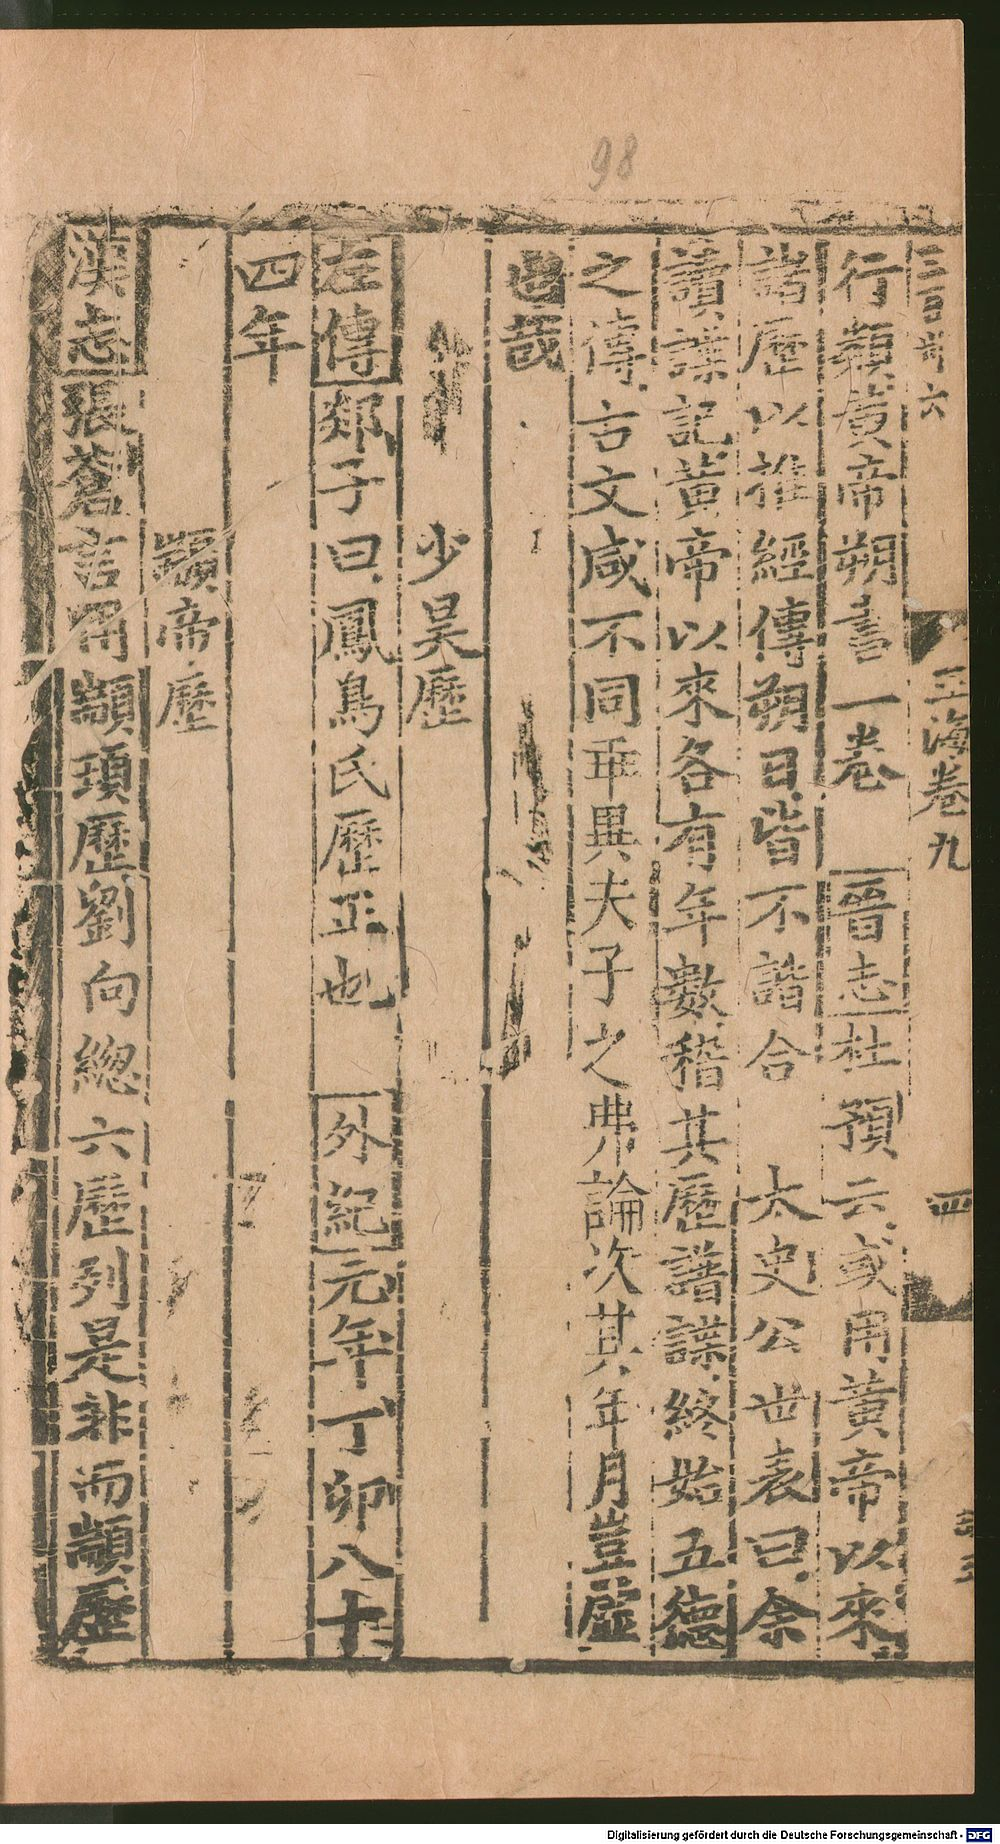 98
三百卅六
玉海卷九
四
行類黃帝朔書一卷 晉志杜預云或用黃帝以來
諸歷以推經傳朔日皆不諧合 太史公世表曰余
讀諜記黃帝以來各有年數稽其歷譜諜終始五德
之傳古文咸不同乖異夫子之弗論次其年月豈虛
也哉
少昊歷
左傳郯子曰鳳鳥氏歷正也 外紀元年丁卯八十
四年
顓帝歷
漢志張蒼言用顓頊歷劉向總六歷列是非而顓歷
Digitalisierung gefördert durch die Deutsche Forschungsgemeinschaft - DFG